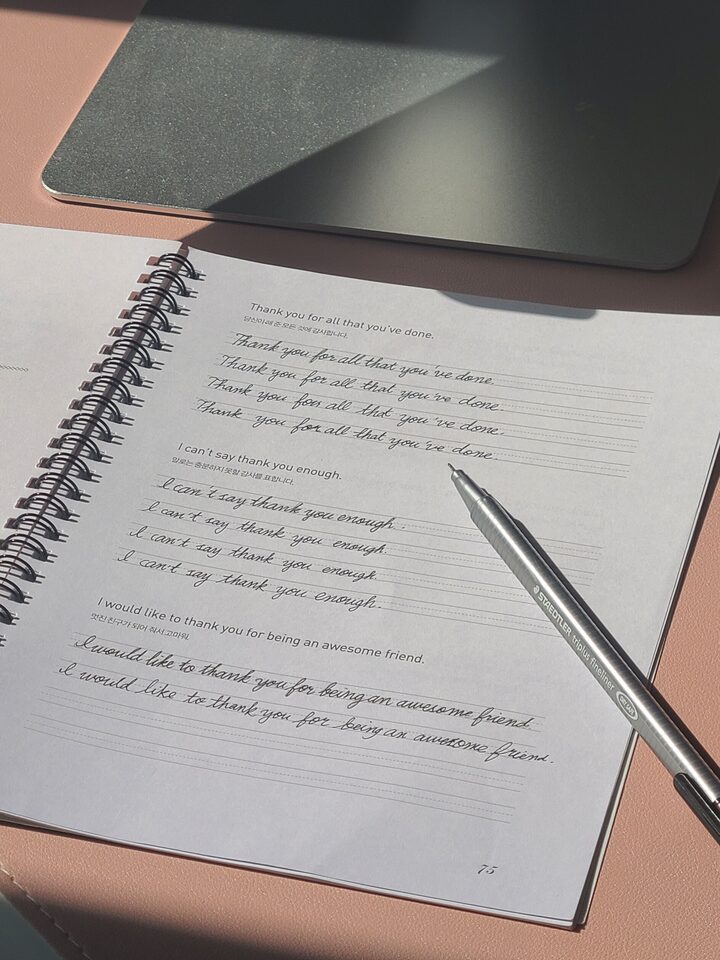 Thank you for all that you've done.
당신이 해 준 모든 것에 감사합니다.
Thank you for all that you've done.
Thank you for all that you've done.
Thank you for all that you've done.
Thank you for all that you've done.
I can't say thank you enough.
말로는 충분하지 못할 감사를 표합니다.
I can't say thank you enough.
I can't say thank you enough.
I can't say thank you enough.
I can't say thank you enough.
I would like to thank you for being an awesome friend.
멋진 친구가 되어 줘서 고마워.
I would like to thank you for being an awesome friend.
I would like to thank you for being an awesome friend.
75
STAEDTLER triplus fineliner